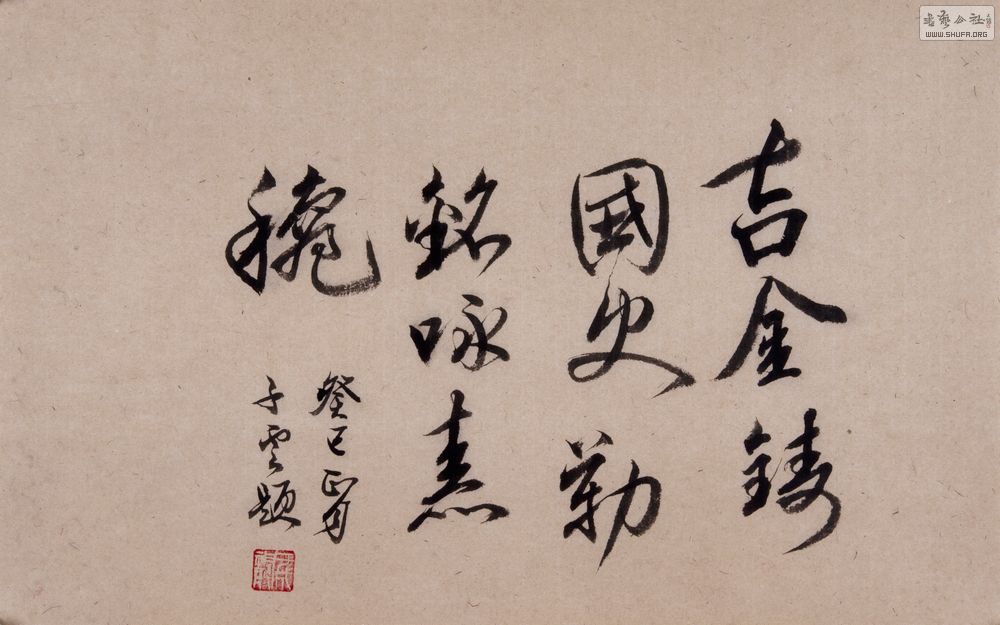 吉金鑄
國史勒
銘咏
穐
癸巳正月
子雲題
書藝公社
WWW.SHUFA.ORG